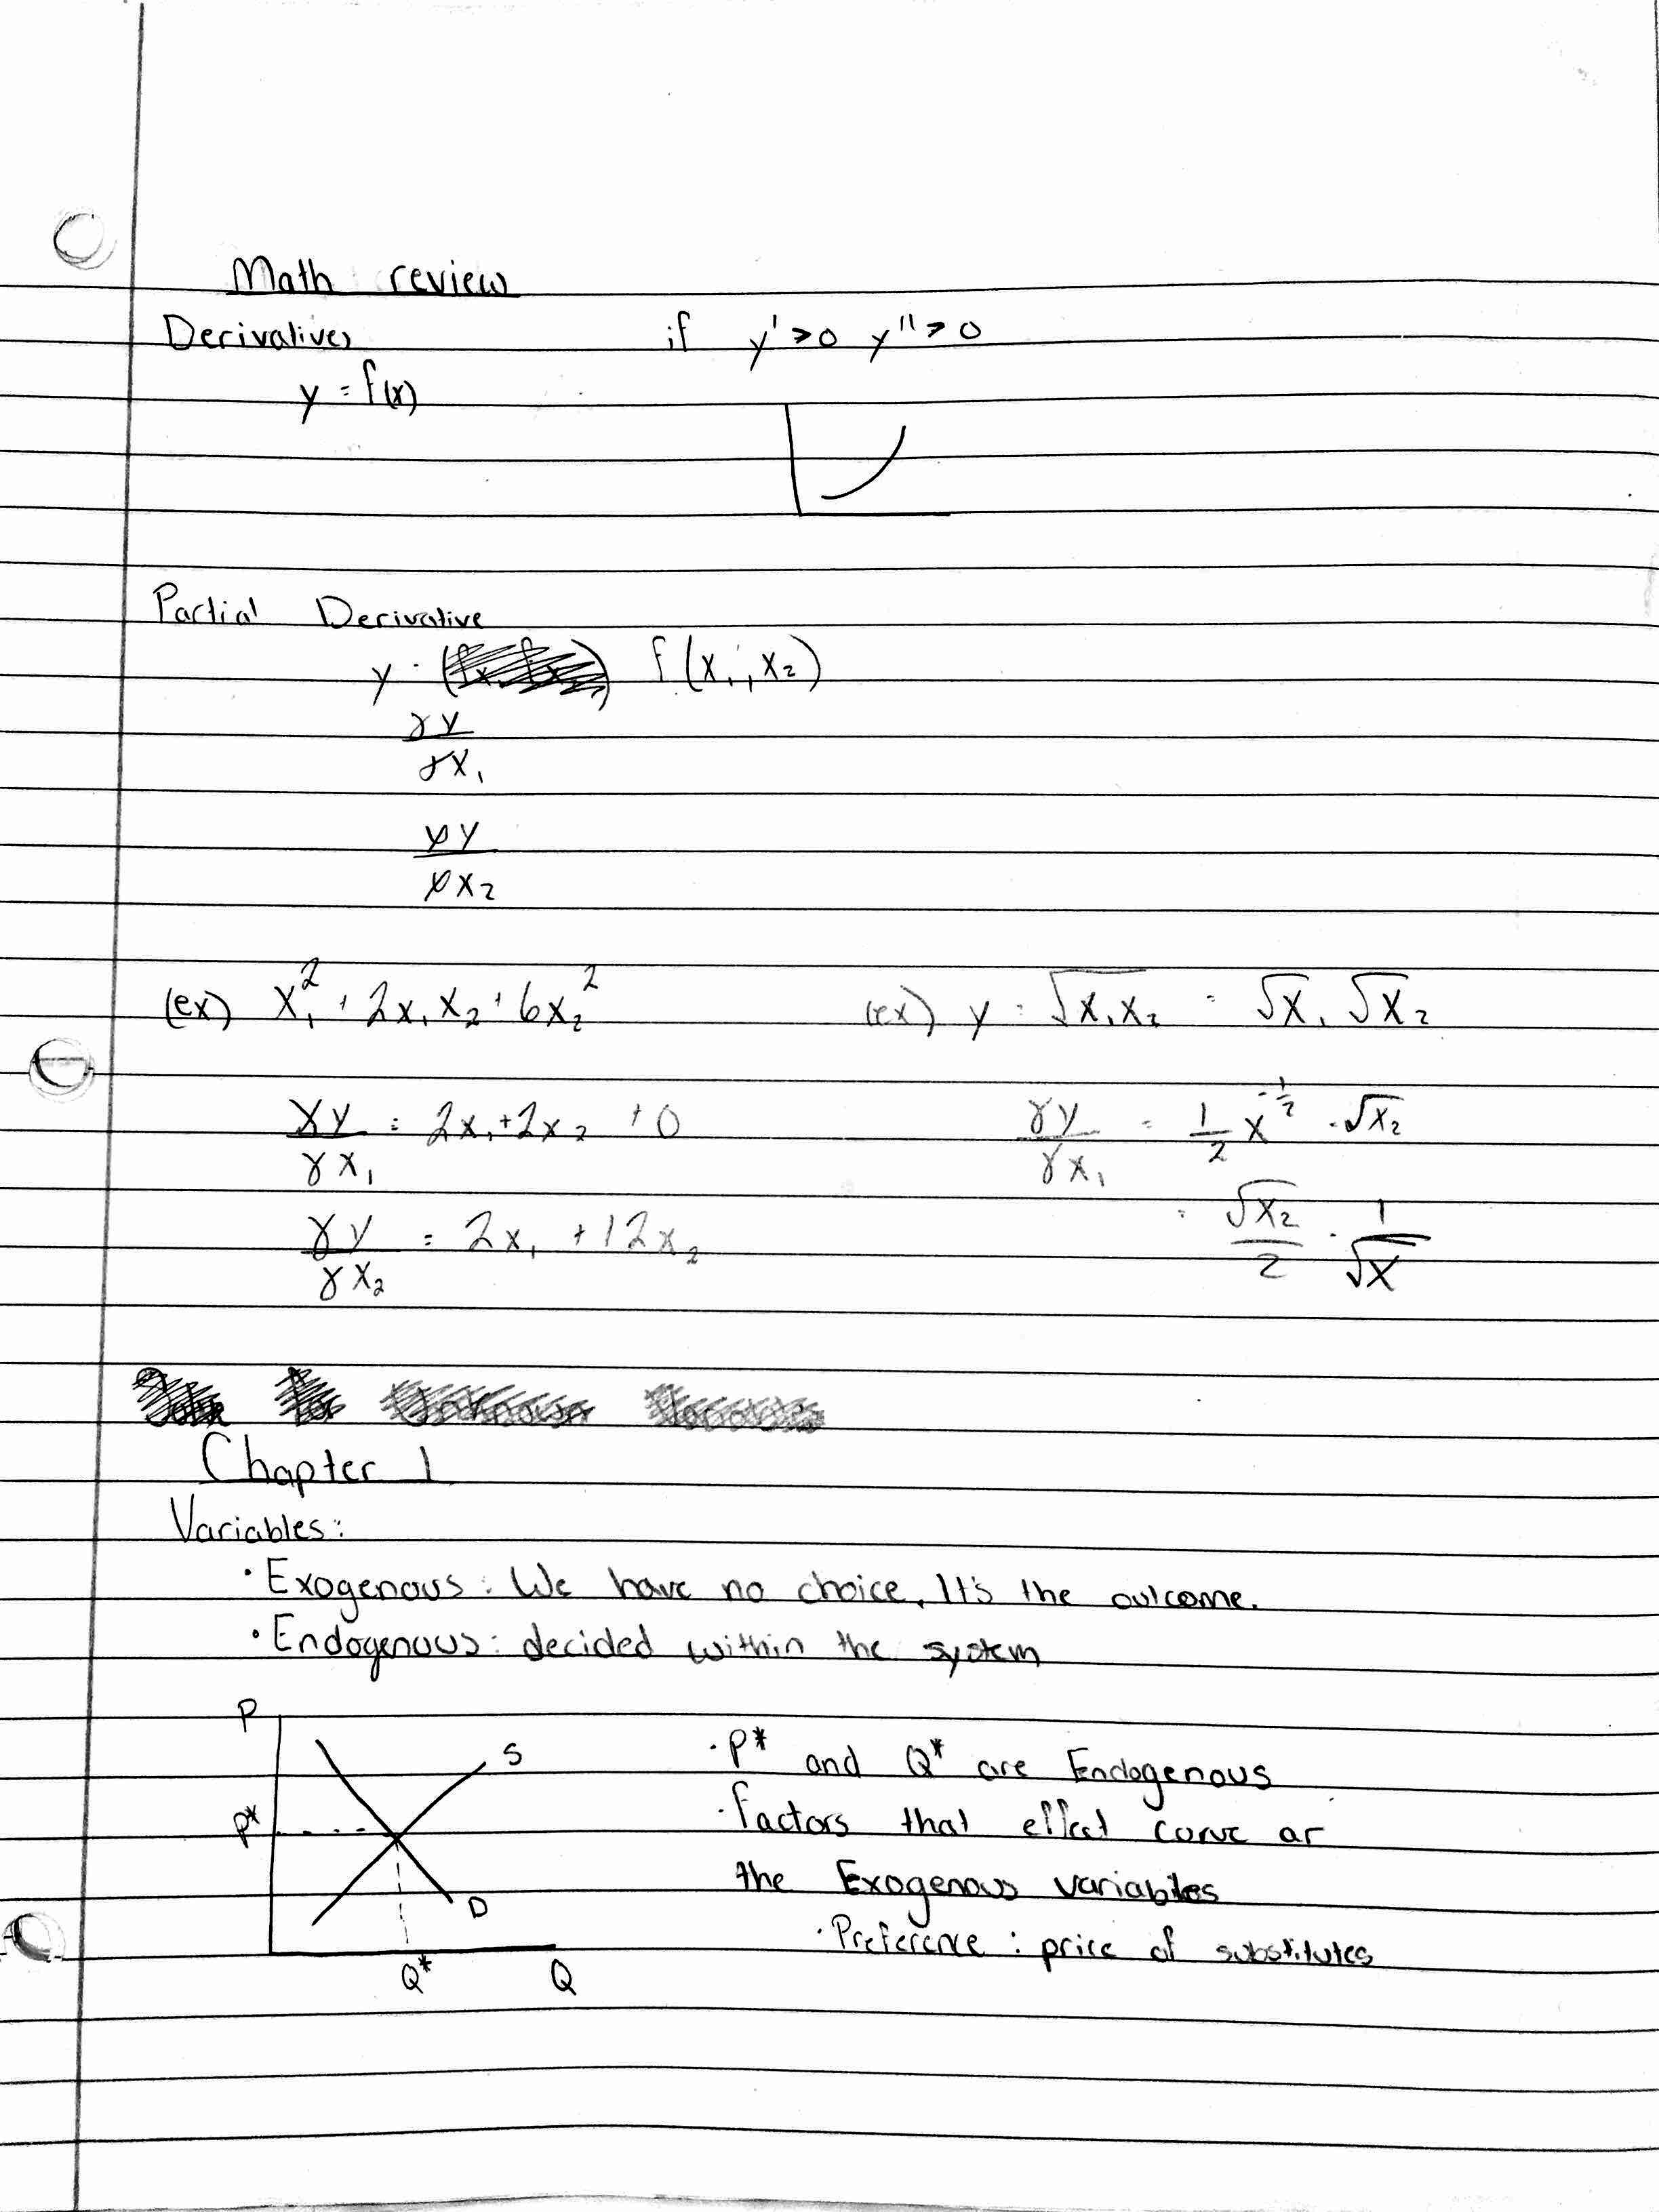 Math review
Derivatives
if y' > 0 y'' > 0
y = f(x)
Partial Derivative
y = f(x₁, x₂)
γy
γx₁
γy
γx₂
(ex) x₁² + 2x₁x₂ + 6x₂²
(ex) y = √x₁x₂ = √x₁ √x₂
γy/γx₁ = 2x₁+2x₂ +0
γy/γx₁ = 1/2 x^-1/2 · √x₂
γy/γx₂ = 2x₁ +12x₂
= √x₂/2 · 1/√x
Chapter 1
Variables:
· Exogenous: We have no choice. It's the outcome.
· Endogenous: decided within the system
P
S
P*
D
Q*
Q
· P* and Q* are Endogenous
· factors that effect curve ar
the Exogenous variables
· Preference : price of substitutes